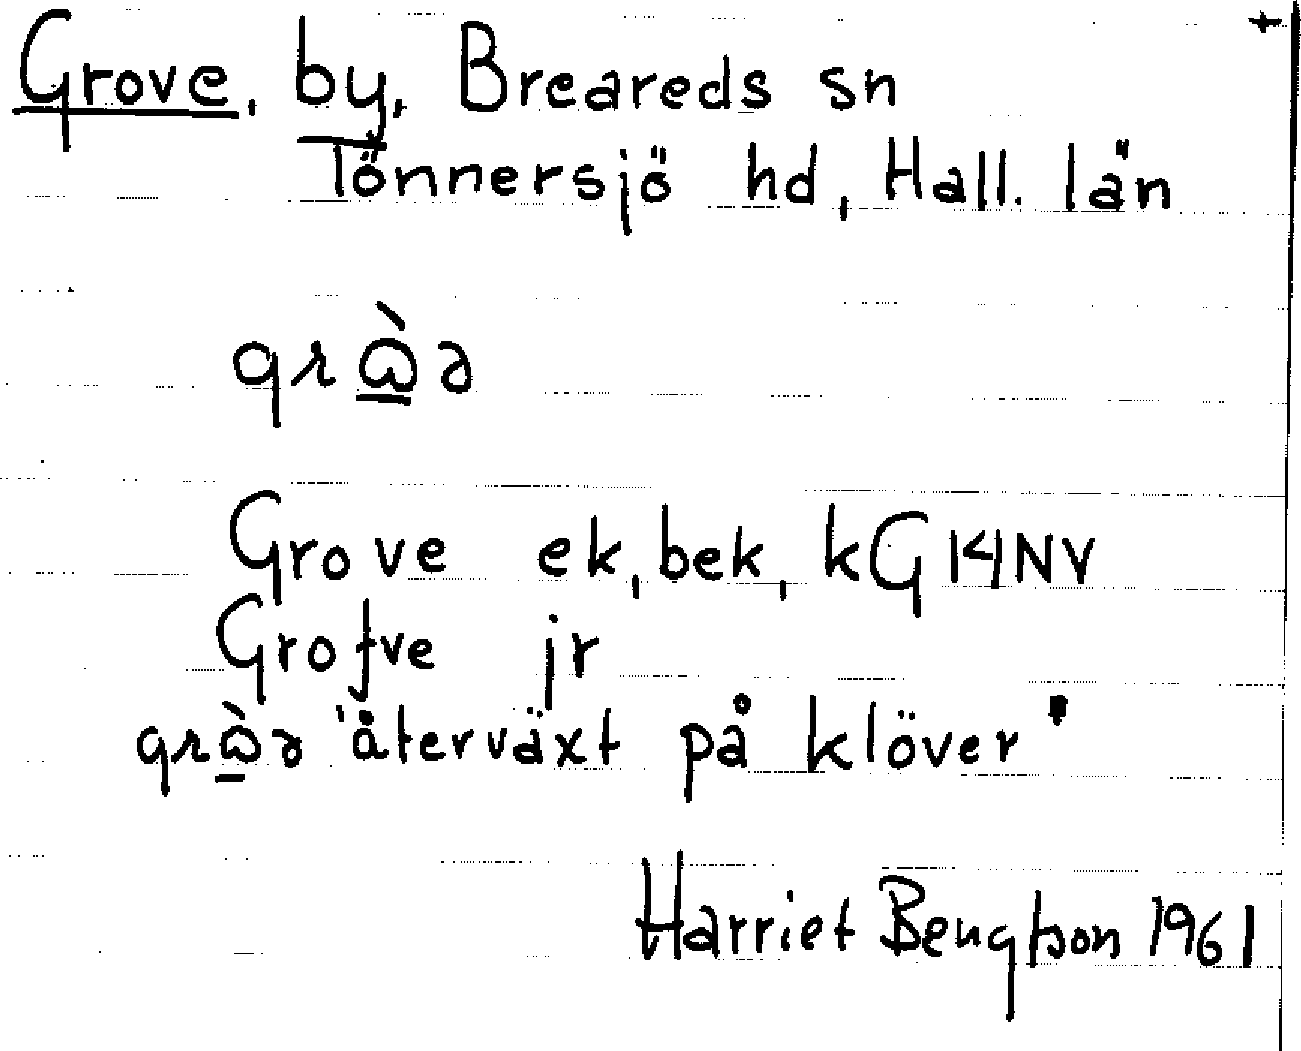 Grove, by, Breareds sn
Tönnersjö hd, Hall. län
grὼ̲ə
Grove ek, bek, kG14NV
Grofve jr
grὼ̲ə 'återväxt på klöver'
Harriet Bengtson 1961